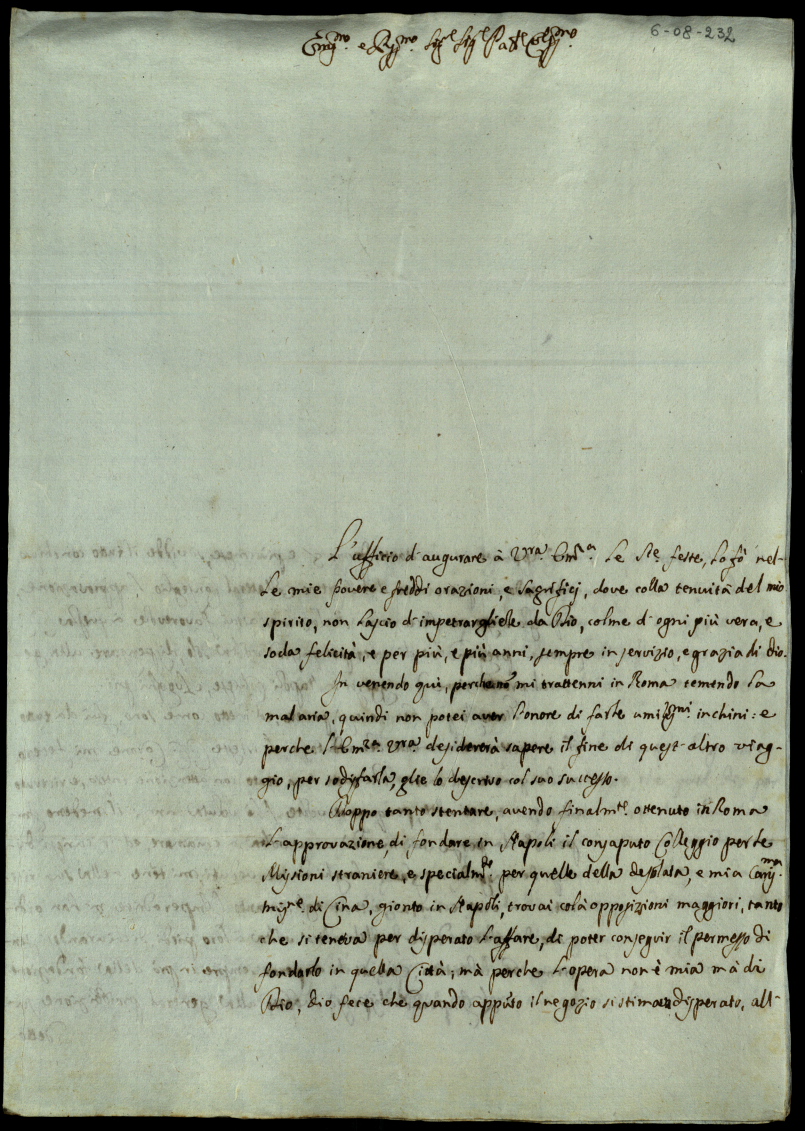 6-08-232
Em̃o. e Rm̃o. Sigre Sigre Padne Colmo.
L'ufficio d'augurare à Vra. Emza. le Ste. feste, lo fò nel-
le mie povere e freddi orazioni, e sagrificj, dove colla tenuità del mio
spirito, non lascio d'impetrargliele da Dio, colme d'ogni più vera, e
soda felicità, e per più, e più anni, sempre in servizio, e grazia di dio.
In venendo quì, perche nō mi trattenni in Roma temendo la
mal'aria, quindi non potei aver l'onore di farle umilmi. inchini: e
perche l'Emza. Vra. desidererà sapere il fine di quest'altro viag-
gio, per sodisfarla, glie lo descrivo col suo successo.
Doppo tanto stentare, avendo finalmte. ottenuto in Roma
l'approvazione, di fondare in Napoli il consaputo Colleggio per le
Missioni straniere, e specialmte. per quelle della desolata, e mia Carissma.
Missne. di Cina, gionto in Napoli, trovai colà opposizioni maggiori, tanto
che si teneva per disperato l'affare, di poter conseguir il permesso di
fondarlo in quella Città; mà perche l'opera non è mia mà di
Dio, dio fece che quando appūto il negozio si stimava disperato, all'-
dello